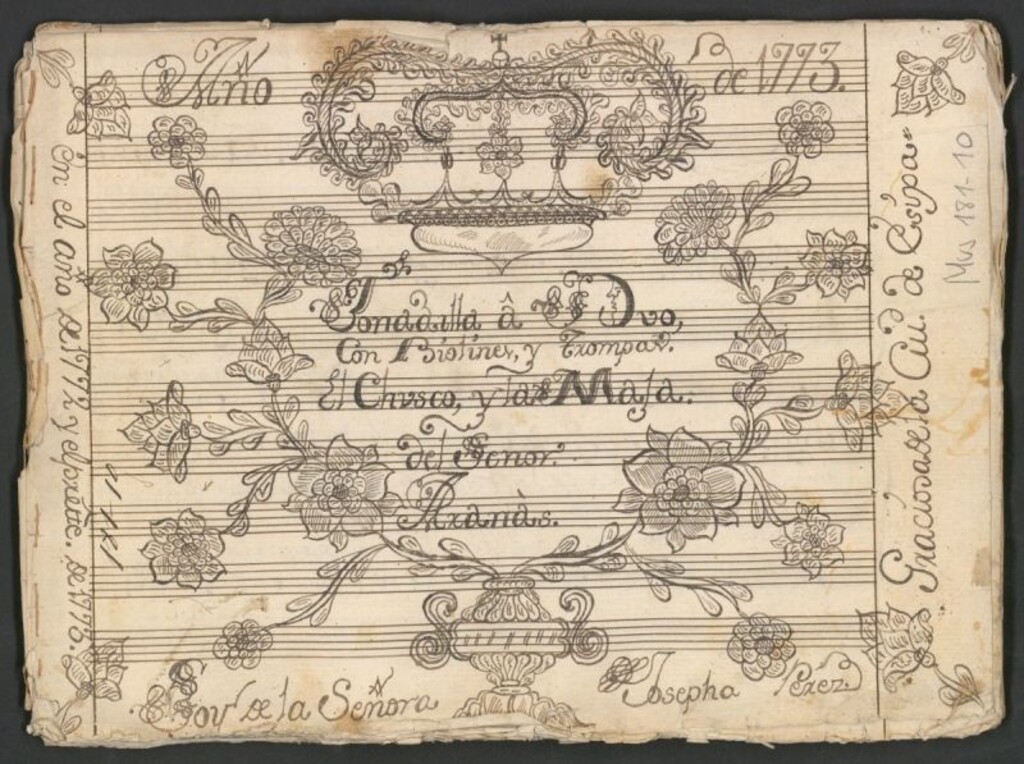 Año de 1773.
Tonadilla â Dvo,
Con Biolines, y Trompas.
El Chvsco, y la Maja.
del Senor.
Aranàs.
Soy de la Señora Josepha Perez
Graciosa de la Ciud. de
Mus 181-10
en el año de 1772 y el presete. de 1773.